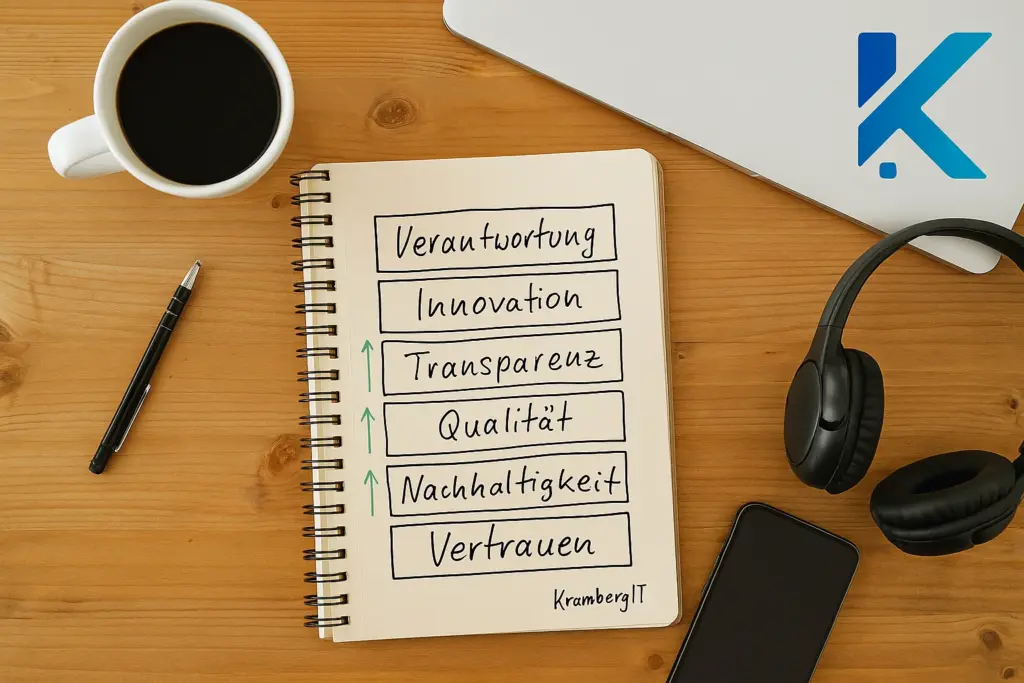 Verantwortung
Innovation
Transparenz
Qualität
Nachhaltigkeit
Vertrauen
KrambergIT